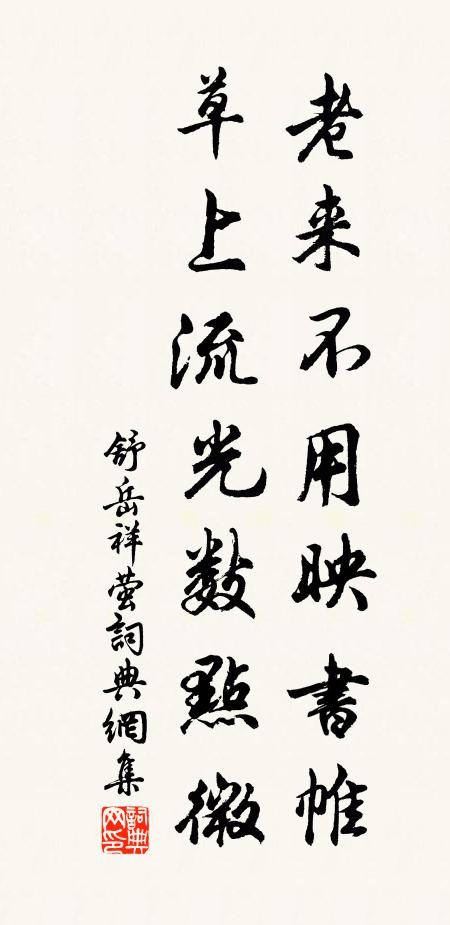 老来不用映書帷
草上流光數點微
舒岳祥萤詞典網集
詞典网印